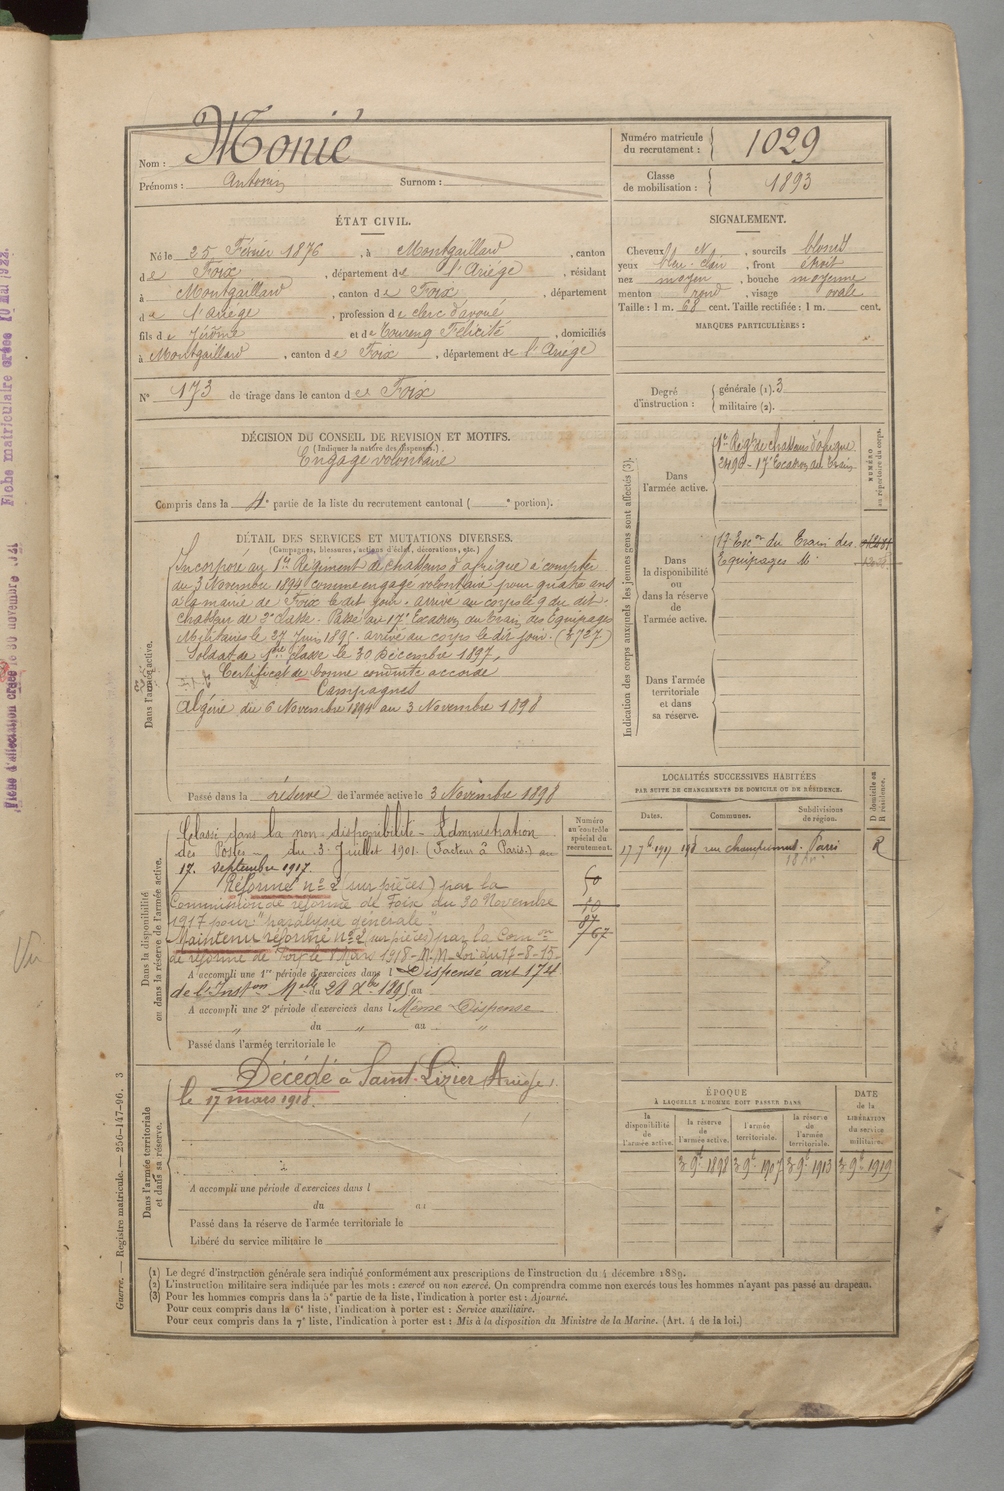 Nom : Monié
Prénoms : Antonin Surnom :
Numéro matricule du recrutement : 1029
Classe de mobilisation : 1893
ÉTAT CIVIL.
Né le 25 Février 1876, à Montgaillard, canton
de Foix, département de l'Ariége, résidant
à Montgaillard, canton de Foix, département
de l'Ariége, profession de clerc d'avoué
fils de Jérôme et de Toureng Félicité, domiciliés
à Montgaillard, canton de Foix, département de l'Ariége
N° 173 de tirage dans le canton de Foix
SIGNALEMENT.
Cheveux , sourcils blonds
yeux bleu-clair, front étroit
nez moyen, bouche moyenne
menton rond, visage ovale
Taille : 1 m. 68 cent. Taille rectifiée : 1 m. cent.
MARQUES PARTICULIÈRES :
Degré d'instruction : générale (1). 3
militaire (2).
DÉCISION DU CONSEIL DE REVISION ET MOTIFS.
(Indiquer la nature des dispenses.)
Engagé volontaire
Compris dans la 4e partie de la liste du recrutement cantonal ( e portion).
DÉTAIL DES SERVICES ET MUTATIONS DIVERSES.
(Campagnes, blessures, actions d'éclat, décorations, etc.)
Dans l'armée active.
Incorporé au 1er Régiment de chasseurs d'afrique à compter
du 3 Novembre 1894 comme engagé volontaire pour quatre ans
à la mairie de Foix le dit jour. arrivé au corps le 9 du dit.
chasseur de 2e classe. Passé au 17e Escadron du Train des Equipages
Militaires le 27 Juin 1895. arrivé au corps le dit jour. (3727)
Soldat de 1ère classe le 30 Décembre 1897.
Certificat de bonne conduite accordé
Campagnes
Algérie du 6 Novembre 1894 au 3 Novembre 1898
Passé dans la réserve de l'armée active le 3 Novembre 1898
Indication des corps auxquels les jeunes gens sont affectés (3).
NUMÉRO au répertoire du corps.
Dans l'armée active.
1er Régt de chasseurs d'afrique
3496 - 17e Escadron du Train
Dans la disponibilité ou dans la réserve de l'armée active.
17 Escon du Train des
Equipages Mi
Dans l'armée territoriale et dans sa réserve.
Dans la disponibilité ou dans la réserve de l'armée active.
Classé dans la non disponibilité - Administration
des Postes - du 3 Juillet 1901. (Facteur à Paris.) au
17. septembre 1917.
Réformé n° 2 (sur pièces) par la
Commission de réforme de Foix du 30 Novembre
1917 pour "paralysie générale"
Maintenu réformé n° 2 (sur pièces) par la Comon
de réforme de Foix le 1 Mars 1918 - M.M. Loi du 17-8-15
A accompli une 1re période d'exercices dans l Dispensé art 174
de l'Inston Melle du 28 Xbre 1895 au
A accompli une 2e période d'exercices dans l Même Dispense
" du " au "
Passé dans l'armée territoriale le
Numéro au contrôle spécial du recrutement.
LOCALITÉS SUCCESSIVES HABITÉES
PAR SUITE DE CHANGEMENTS DE DOMICILE OU DE RÉSIDENCE.
Dates. Communes. Subdivisions de région. D domicile ou R résidence.
17 7bre 1917 198 rue championnet. Paris R
18e Arrt
Dans l'armée territoriale et dans sa réserve.
Décédé à Saint-Lizier (Ariège)
le 17 mars 1918.
A accompli une période d'exercices dans l
du au
Passé dans la réserve de l'armée territoriale le
Libéré du service militaire le
ÉPOQUE
À LAQUELLE L'HOMME DOIT PASSER DANS
la disponibilité de l'armée active. la réserve de l'armée active. l'armée territoriale. la réserve de l'armée territoriale. DATE de la LIBÉRATION du service militaire.
3 9bre 1898 3 9bre 1907 3 9bre 1913 3 9bre 1919
(1) Le degré d'instruction générale sera indiqué conformément aux prescriptions de l'instruction du 4 décembre 1889.
(2) L'instruction militaire sera indiquée par les mots : exercé ou non exercé. On comprendra comme non exercés tous les hommes n'ayant pas passé au drapeau.
(3) Pour les hommes compris dans la 5e partie de la liste, l'indication à porter est : Ajourné.
Pour ceux compris dans la 6e liste, l'indication à porter est : Service auxiliaire.
Pour ceux compris dans la 7e liste, l'indication à porter est : Mis à la disposition du Ministre de la Marine. (Art. 4 de la loi.)
Guerre. — Registre matricule. — 256-147-96. 3
Fiche matriculaire créée
Fiche d'affectation créée le 30 novembre
Vu